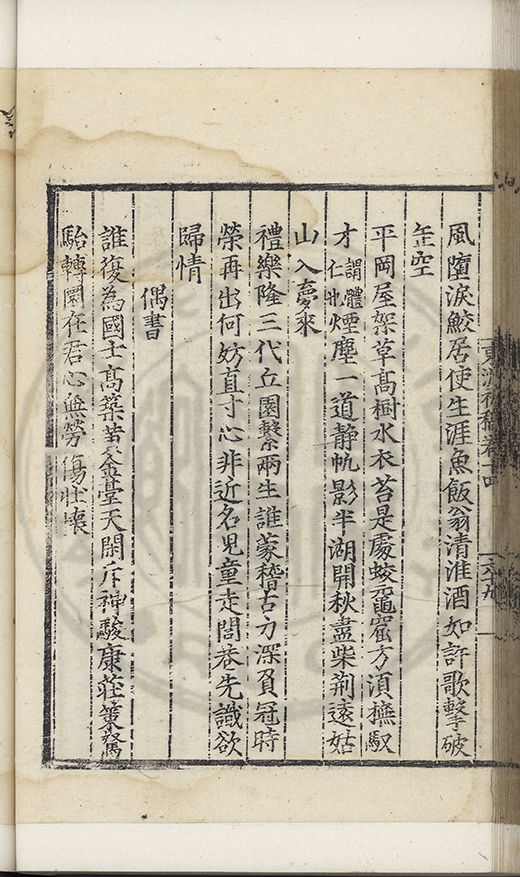 風墮淚鮫居使生涯魚飯翁清淮酒如許歌擊破
缶空
平岡屋架草高樹水衣苔是處蛟鼉窟方須撫馭
才謂體仁卅煙塵一道静帆影半湖開秋盡柴荆遠姑
山入夢來
禮樂隆三代丘園繫兩生誰蒙稽古力深負冠時
榮再出何妨直寸心非近名児童走閭巷先識欲
歸情
偶書
誰復為國士高築黄金臺天閑斥神駿康莊策駑
駘轉圜在君心無勞傷壯懷